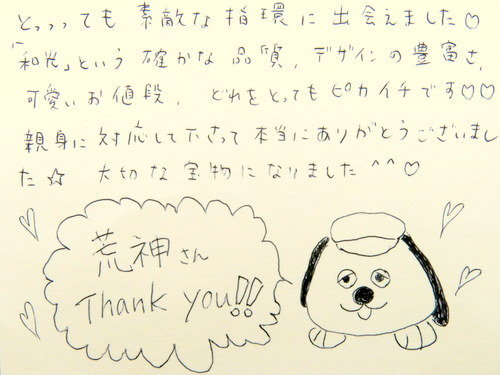 とっっっても 素敵な 指環に 出会えました♡
「和光」という 確かな 品質、デザインの 豊富さ、
可愛いお値段、 どれをとっても ピカイチです♡♡
親身に 対応して下さって 本当にありがとうございまし
た☆ 大切な宝物になりました^^♡
荒神さん
Thank you!!